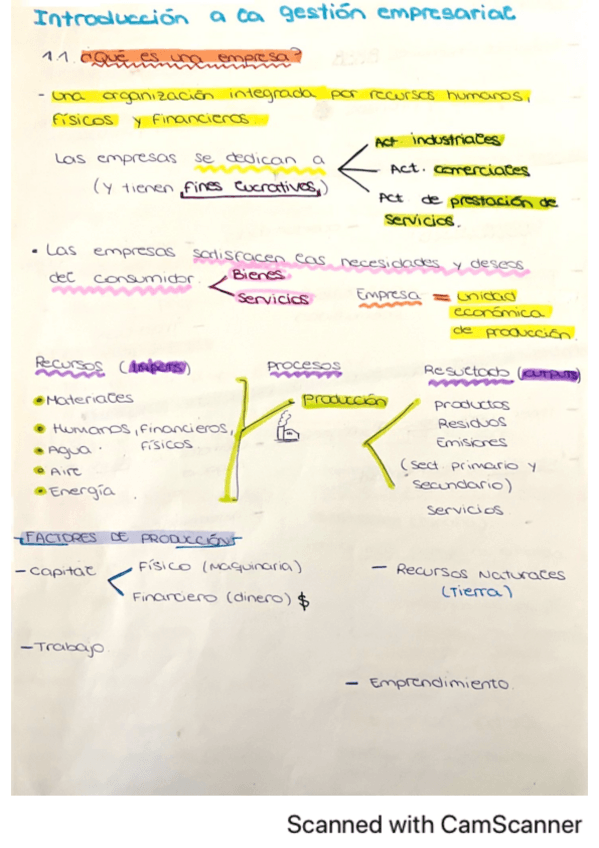 Introducción a la gestión empresarial
1.1. ¿Qué es una empresa?
- una organización integrada por recursos humanos,
físicos y financieros.
Las empresas se dedican a
(y tienen fines lucrativos,)
Act industriales
Act. comerciales
Act de prestación de
servicios.
• Las empresas satisfacen las necesidades y deseos
del consumidor.
Bienes
Servicios
Empresa = unidad
económica
de producción.
Recursos (Inputs)
• Materiales
• Humanos, financieros,
físicos
• Agua.
• Aire
• Energía
procesos
• Producción
Resultado (outputs)
Productos
Residuos
Emisiones
(sect. primario y
secundario)
Servicios
- FACTORES DE PRODUCCIÓN -
- Capital
Físico (Maquinaria)
Financiero (dinero) $
- Recursos Naturales
(Tierra)
- Trabajo
- Emprendimiento.
Scanned with CamScanner